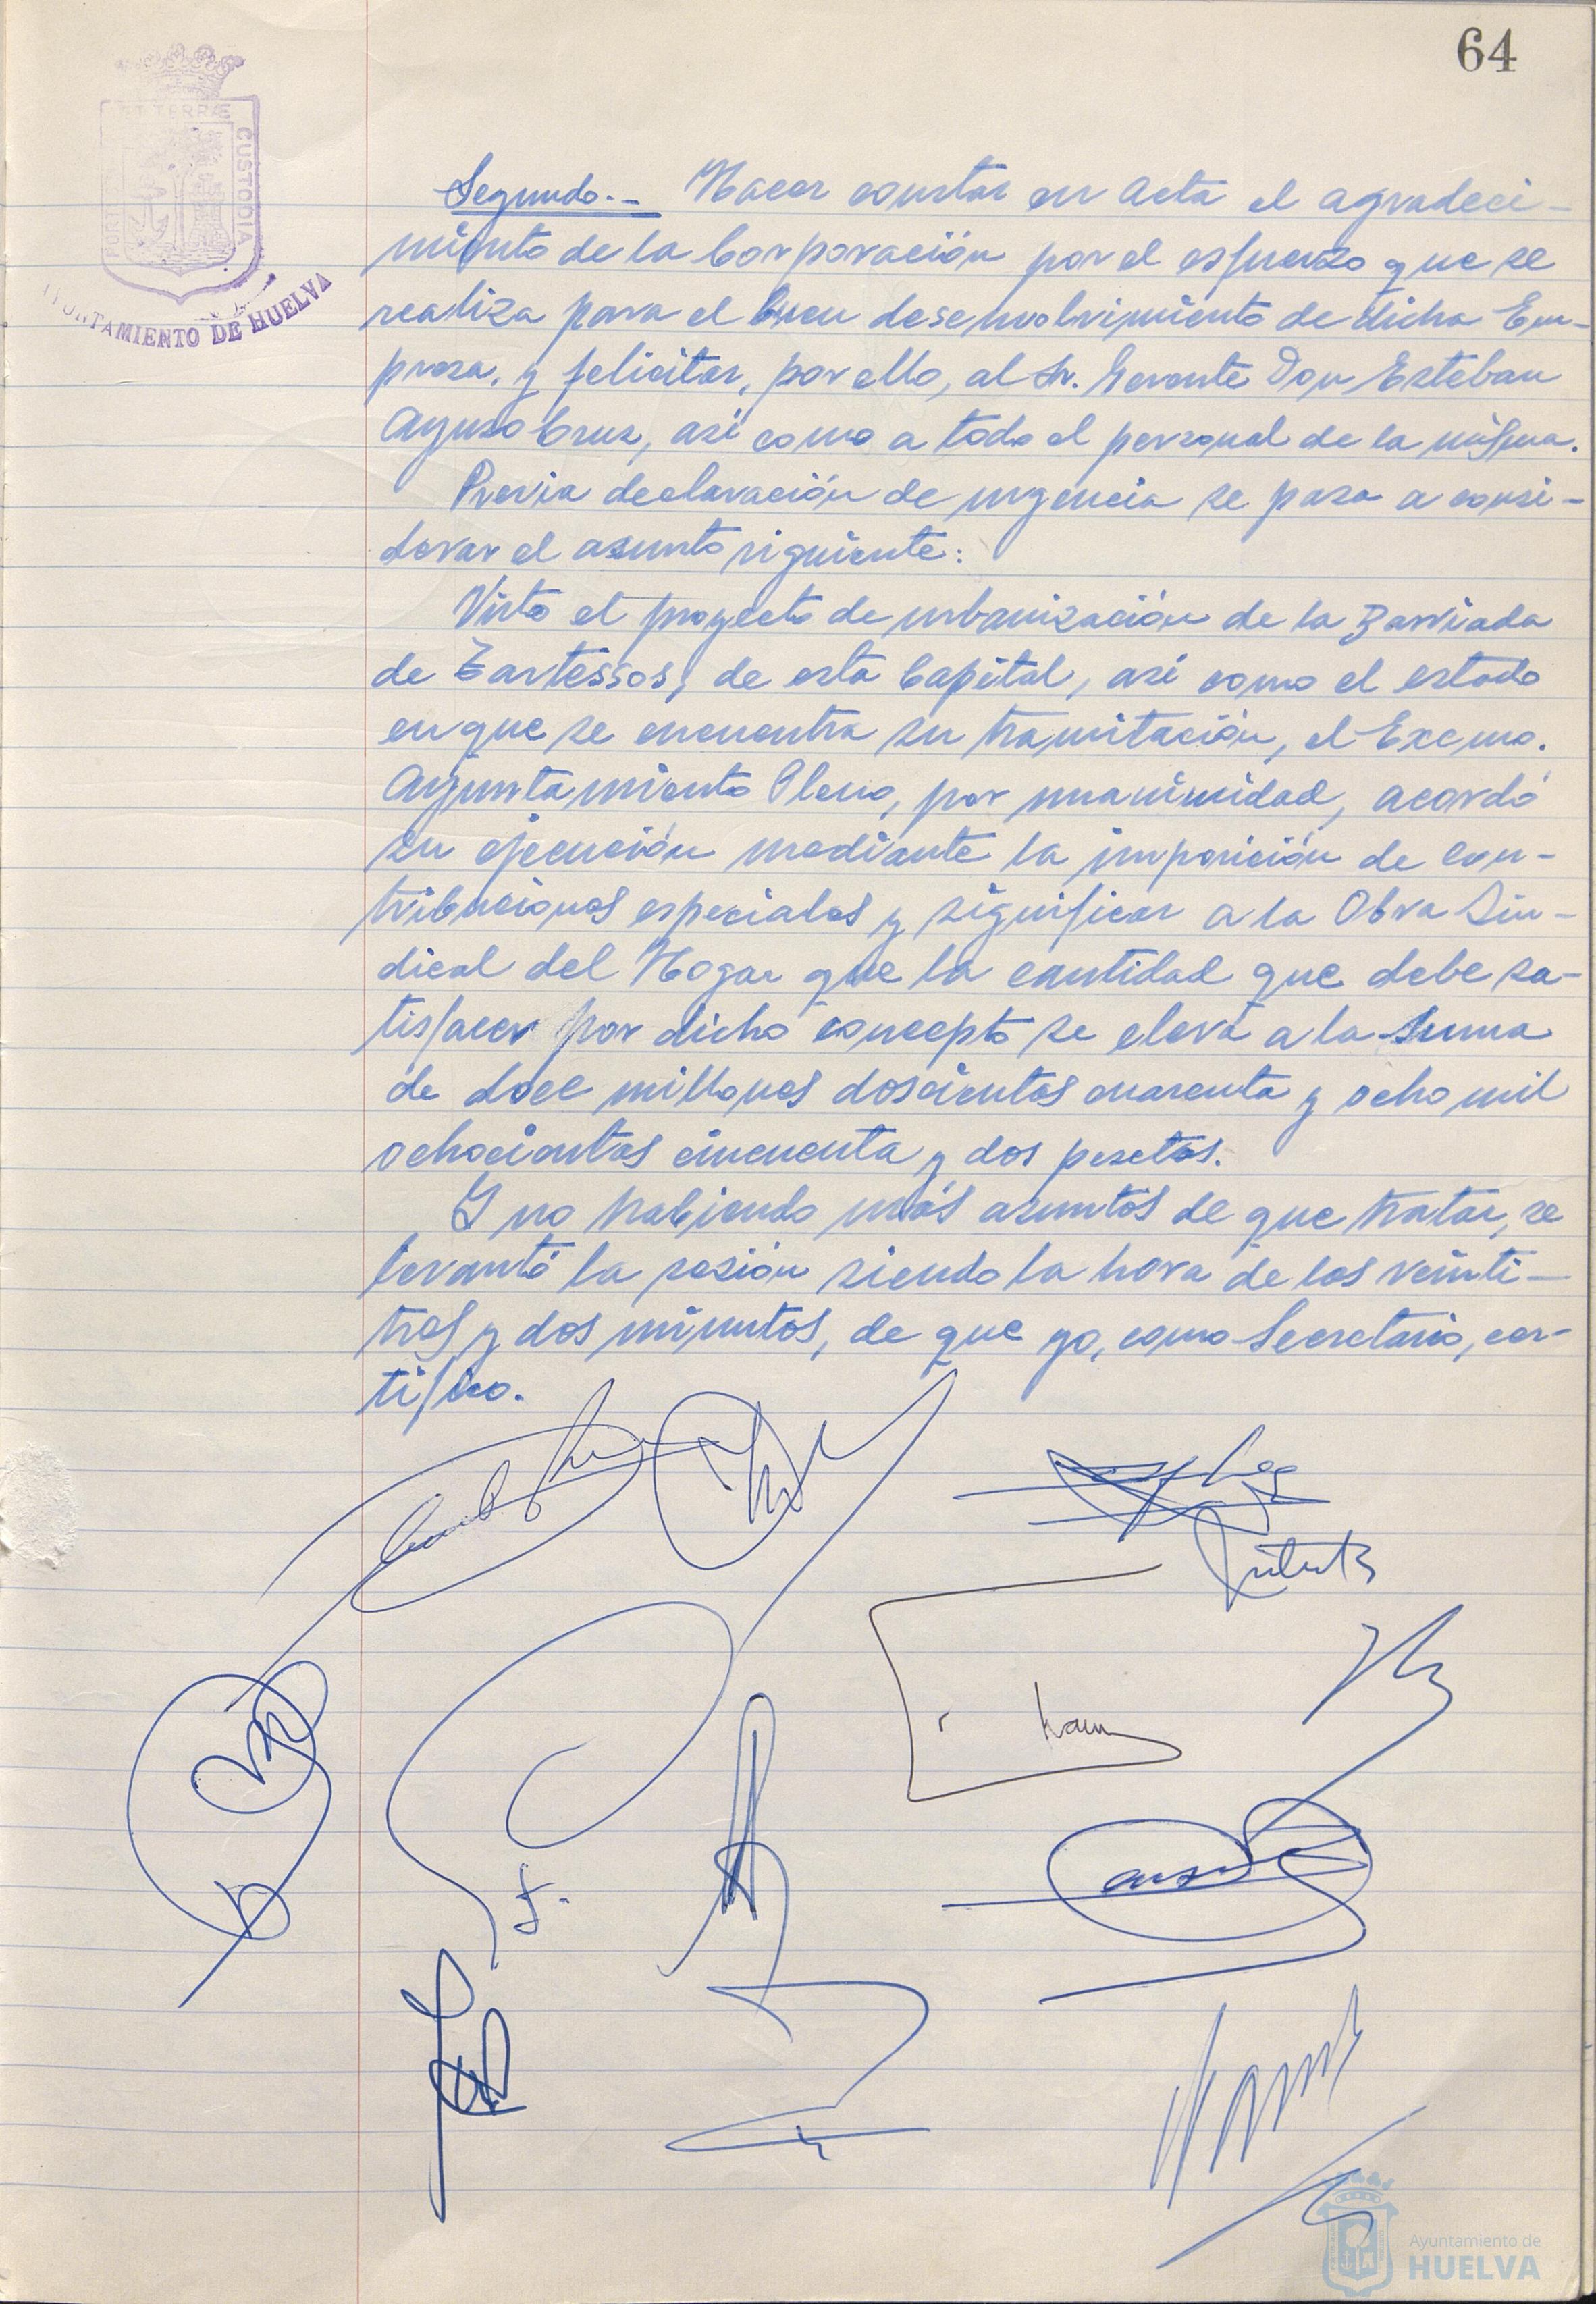 64
PORT
ET TERRÆ
CUSTODIA
AYUNTAMIENTO DE HUELVA
Segundo.- Hacer constar en Acta el agradeci-
miento de la Corporación por el esfuerzo que se
realiza para el buen desenvolvimiento de dicha Em-
presa, y felicitar, por ello, al Sr. Gerente Don Esteban
Ayuso Cruz, así como a todo el personal de la misma.
Previa declaración de urgencia se pasa a consi-
derar el asunto siguiente:
Visto el proyecto de urbanización de la Barriada
de Tartessos, de esta Capital, así como el estado
en que se encuentra su tramitación, el Excmo.
Ayuntamiento Pleno, por unanimidad, acordó
su ejecución mediante la imposición de con-
tribuciones especiales y significar a la Obra Sin-
dical del Hogar que la cantidad que debe sa-
tisfacer por dicho concepto se eleva a la suma
de doce millones doscientas cuarenta y ocho mil
ochocientas cincuenta y dos pesetas.
Y no habiendo más asuntos de que tratar, se
levantó la sesión siendo la hora de las veinti-
tres y dos minutos, de que yo, como Secretario, cer-
tifico.
Ayuntamiento de
HUELVA